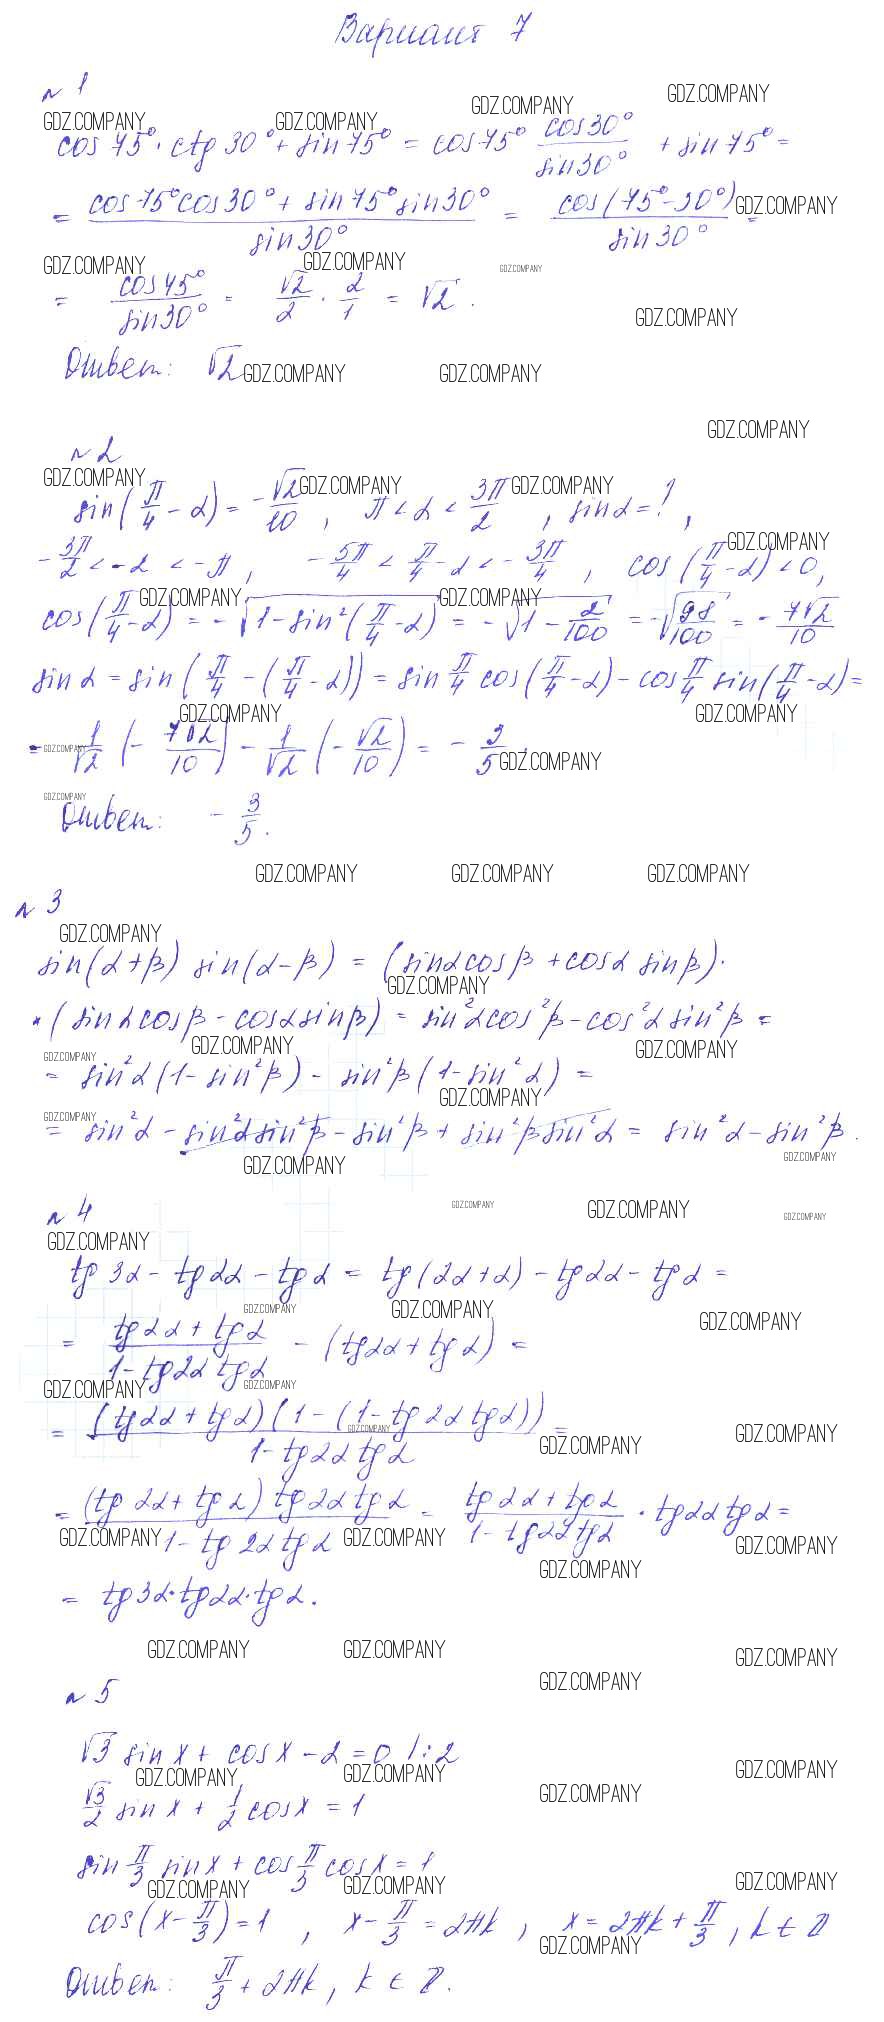 Вариант 7
№ 1
GDZ.COMPANY GDZ.COMPANY GDZ.COMPANY GDZ.COMPANY
cos 75° · ctg 30° + sin 75° = cos 75° cos 30° / sin 30° + sin 75° =
= (cos 75° cos 30° + sin 75° sin 30°) / sin 30° = cos(75° - 30°) / sin 30° = GDZ.COMPANY
GDZ.COMPANY GDZ.COMPANY GDZ.COMPANY
= cos 45° / sin 30° = √2/2 · 2/1 = √2.
GDZ.COMPANY
Ответ: √2 GDZ.COMPANY GDZ.COMPANY
GDZ.COMPANY
№ 2
GDZ.COMPANY GDZ.COMPANY GDZ.COMPANY
sin(π/4 - α) = -√2/10, π < α < 3π/2, sin α = ?,
GDZ.COMPANY
-3π/2 < -α < -π, -5π/4 < π/4 - α < -3π/4, cos(π/4 - α) < 0,
GDZ.COMPANY GDZ.COMPANY
cos(π/4 - α) = -√(1 - sin²(π/4 - α)) = -√(1 - 2/100) = -√(98/100) = -7√2/10
sin α = sin(π/4 - (π/4 - α)) = sin π/4 cos(π/4 - α) - cos π/4 sin(π/4 - α) =
GDZ.COMPANY GDZ.COMPANY
= 1/√2 (-7√2/10) - 1/√2 (-√2/10) = -3/5.
GDZ.COMPANY GDZ.COMPANY
GDZ.COMPANY
Ответ: -3/5.
GDZ.COMPANY GDZ.COMPANY GDZ.COMPANY
№ 3
GDZ.COMPANY
sin(α+β) sin(α-β) = (sin α cos β + cos α sin β) ·
GDZ.COMPANY
· (sin α cos β - cos α sin β) = sin²α cos²β - cos²α sin²β =
GDZ.COMPANY GDZ.COMPANY GDZ.COMPANY
= sin²α (1 - sin²β) - sin²β (1 - sin²α) =
GDZ.COMPANY GDZ.COMPANY
= sin²α - sin²α sin²β - sin²β + sin²β sin²α = sin²α - sin²β.
GDZ.COMPANY GDZ.COMPANY
№ 4
GDZ.COMPANY GDZ.COMPANY GDZ.COMPANY
GDZ.COMPANY
tg 3α - tg 2α - tg α = tg(2α + α) - tg 2α - tg α =
GDZ.COMPANY GDZ.COMPANY GDZ.COMPANY
= (tg 2α + tg α) / (1 - tg 2α tg α) - (tg 2α + tg α) =
GDZ.COMPANY GDZ.COMPANY
= (tg 2α + tg α)(1 - (1 - tg 2α tg α)) / (1 - tg 2α tg α) =
GDZ.COMPANY GDZ.COMPANY GDZ.COMPANY
= (tg 2α + tg α) tg 2α tg α / (1 - tg 2α tg α) = (tg 2α + tg α) / (1 - tg 2α tg α) · tg 2α tg α =
GDZ.COMPANY GDZ.COMPANY GDZ.COMPANY
GDZ.COMPANY
= tg 3α · tg 2α · tg α.
GDZ.COMPANY GDZ.COMPANY GDZ.COMPANY
GDZ.COMPANY
№ 5
√3 sin x + cos x - 2 = 0 | : 2
GDZ.COMPANY GDZ.COMPANY GDZ.COMPANY
√3/2 sin x + 1/2 cos x = 1 GDZ.COMPANY
sin π/3 sin x + cos π/3 cos x = 1
GDZ.COMPANY GDZ.COMPANY GDZ.COMPANY
cos(x - π/3) = 1, x - π/3 = 2πk, x = 2πk + π/3, k ∈ Z
GDZ.COMPANY
Ответ: π/3 + 2πk, k ∈ Z.